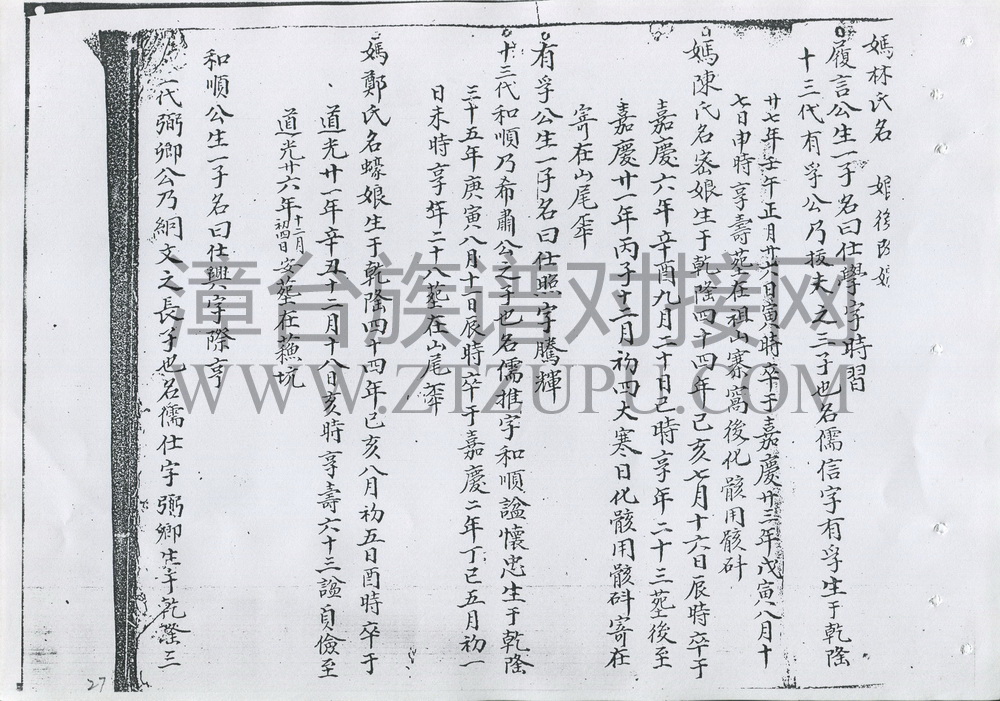 媽林氏名 娘後改嫁
履言公生一子名曰仕學字時習
十三代有孚公乃拔夫之三子也名儒信字有孚生于乾隆
廿七年壬午正月廿六日寅時卒于嘉慶廿三年戊寅八月十
七日申時享壽塟在祖山寨窩後化骸用骸㪶
媽陳氏名密娘生于乾隆四十四年己亥七月十六日辰時卒于
嘉慶六年辛酉九月二十日巳時享年二十三塟後至
嘉慶廿一年丙子十二月初四大寒日化骸用骸㪶寄在
寄在山尾
有孚公生一子名曰仕照字騰輝
十三代和順乃希肅公之子也名儒推字和順諡懷忠生于乾隆
三十五年庚寅八月十一日辰時卒于嘉慶二年丁巳五月初一
日未時享年二十八葬在山尾
媽鄭氏名蠔娘生于乾隆四十四年己亥八月初五日酉時卒于
道光廿一年辛丑十二月十八日亥時享壽六十三諡貞儉至
道光廿六年十二月初四日安塟在坑
和順公生一子名曰仕興字際亨
代弼卿公乃綱文之長子也名儒仕字弼卿生于乾隆三
漳台族谱对接网
WWW.ZTZUPU.COM
27